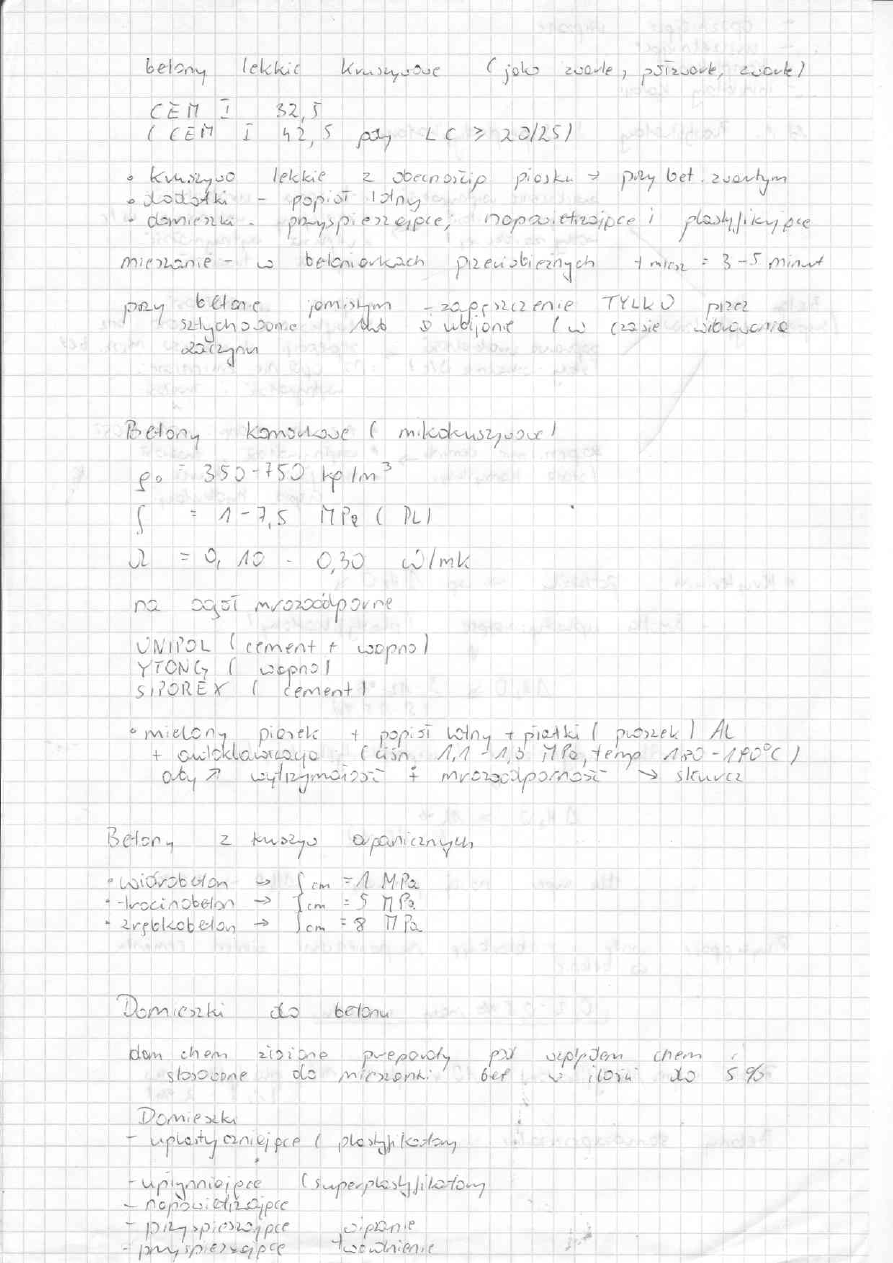 betony lekkie kruszywowe (jako zwarte, półzwarte, zwarte)
CEM I 32,5
(CEM I 42,5 gdy LC ≥ 20/25)
• kruszywo lekkie z obecnością piasku → przy bet. zwartym
• dodatki - popiół lotny
• domieszki - przyspieszające, napowietrzające i plastyfikujące
mieszanie - w betoniarkach przeciwbieżnych t miesz = 3-5 minut
przy betonie jamistym - zagęszczenie TYLKO przez
sztychowanie lub ubijanie (w czasie wibrowania
zaczynu
Betony komórkowe (mikrokruszywowe)
ρo = 350-750 kg/m³
f = 1-7,5 MPa (PL)
λ = 0,10 - 0,30 W/mk
na ogół mrozoodporne
UNIPOL (cement + wapno)
YTONG (wapno)
SIPOREX (cement)
• mielony piasek + popiół lotny + płatki (proszek) AL
+ autoklawizacja (ciśn 1,1-1,3 MPa, temp 180-190°C)
aby ↗ wytrzymałość + mrozoodporność ↘ skurcz
Betony z kruszyw organicznych
• wiórobeton → fcm = 1 MPa
• trocinobeton → fcm = 5 MPa
• zrębkobeton → fcm = 8 MPa
Domieszki do betonu
dom chem złożone preparaty pod względem chem i
stosowane do mieszanki bet w ilości do 5%
Domieszki
- uplastyczniające (plastyfikatory
- upłynniające (superplastyfikatory
- napowietrzające
- przyspieszające wiązanie
- przyspieszające twardnienie